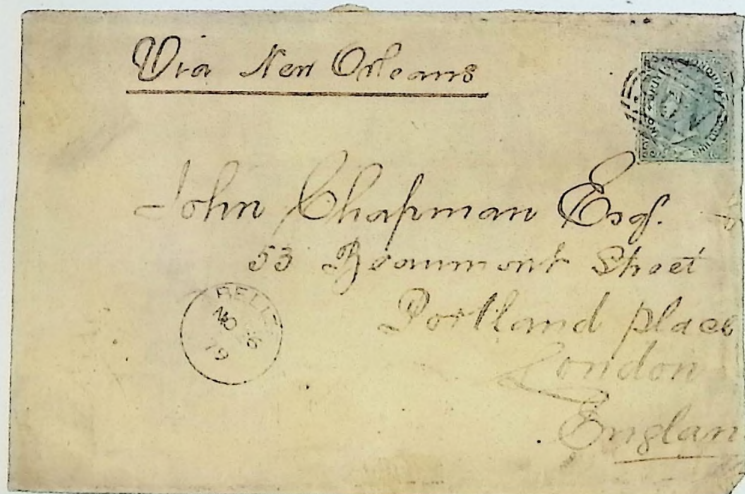 Via New Orleans
John Chapman Esq.
53 Beaumont Street
Portland place
London
Englan
BELIZE
79